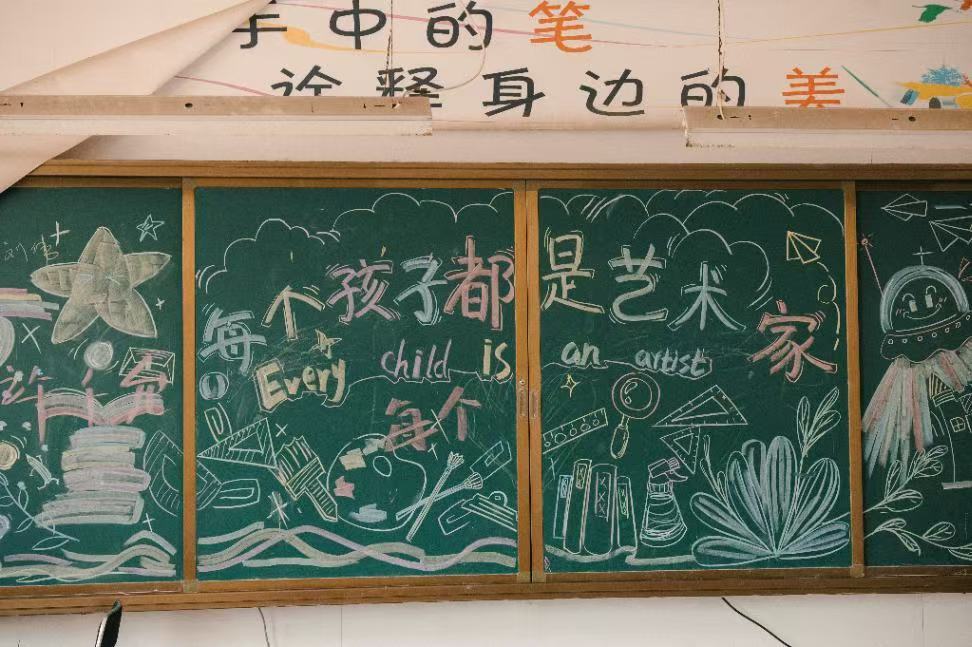 手中的笔
诠释身边的美
每个孩子都是艺术家
Every child is an artist
每个